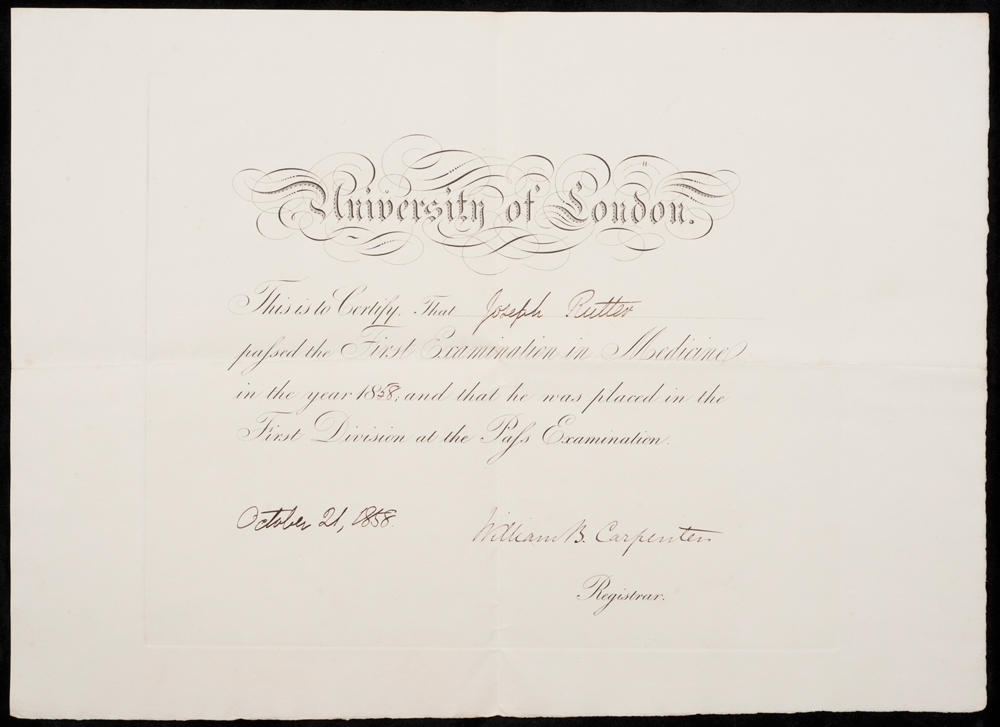 University of London.
This is to Certify, That Joseph Rutter
passed the First Examination in Medicine
in the year 1858, and that he was placed in the
First Division at the Pass Examination.
October 21, 1858.
William B. Carpenter
Registrar.